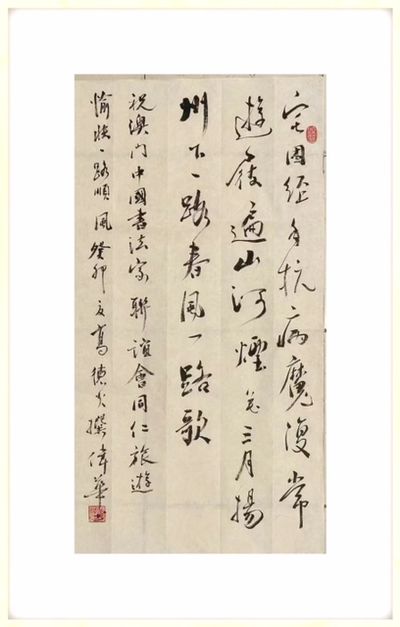 宅困經年抗病魔復常
遊屐遍山河煙花三月揚
州下一路春風一路歌
祝澳門中國書法家聯誼會同仁旅遊
愉快一路順風癸卯夏德撰偉華